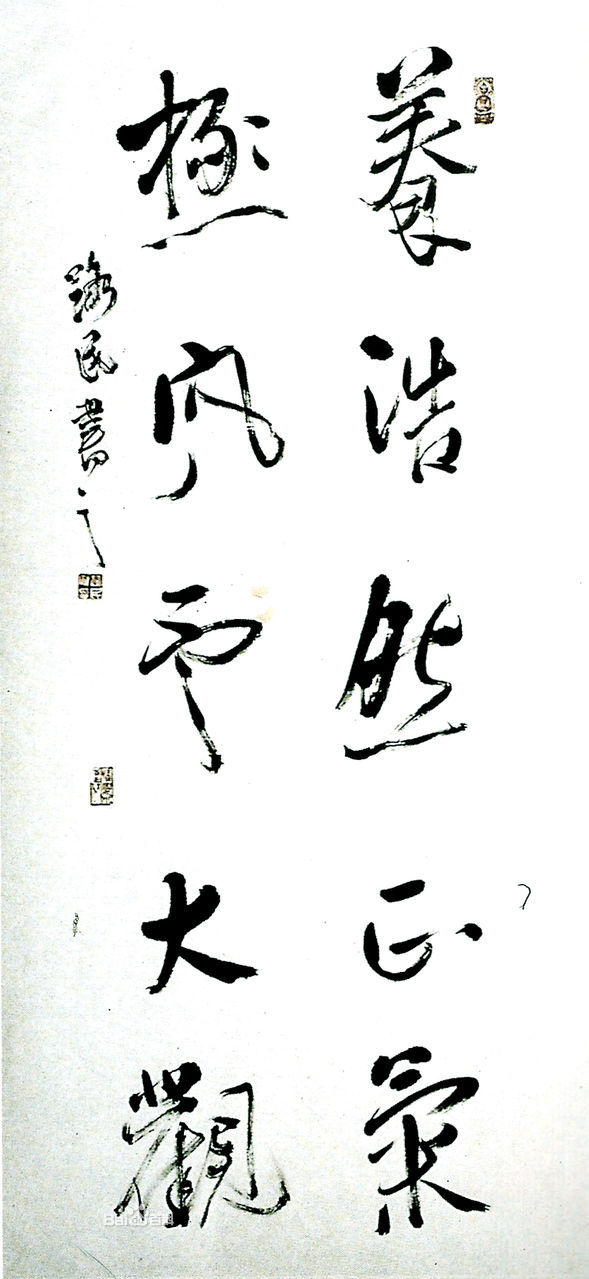 養浩然正氣
極風雲大觀
民書